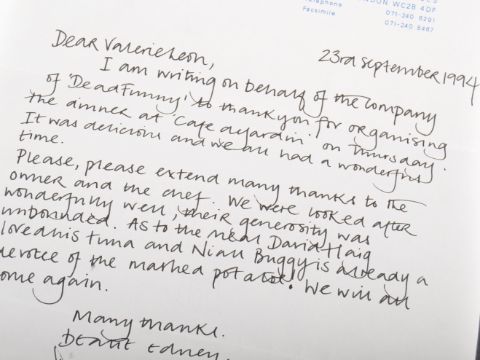 LONDON WC2B 4DF
Telephone 071-240 8201
Facsimile 071-240
23rd September 1994
Dear Valerie Leon,
I am writing on behalf of the company
of 'Dead Funny' to thank you for organising
the dinner at 'Cafe du Jardin' on Thursday.
It was delicious and we all had a wonderful
time.
Please, please extend many thanks to the
owner and the chef. We were looked after
wonderfully well, their generosity was
unbounded. As to the meal David Haig
loved his tuna and Niall Buggy is already a
devotee of the mashed potatoe. We will all
come again.
Many thanks.